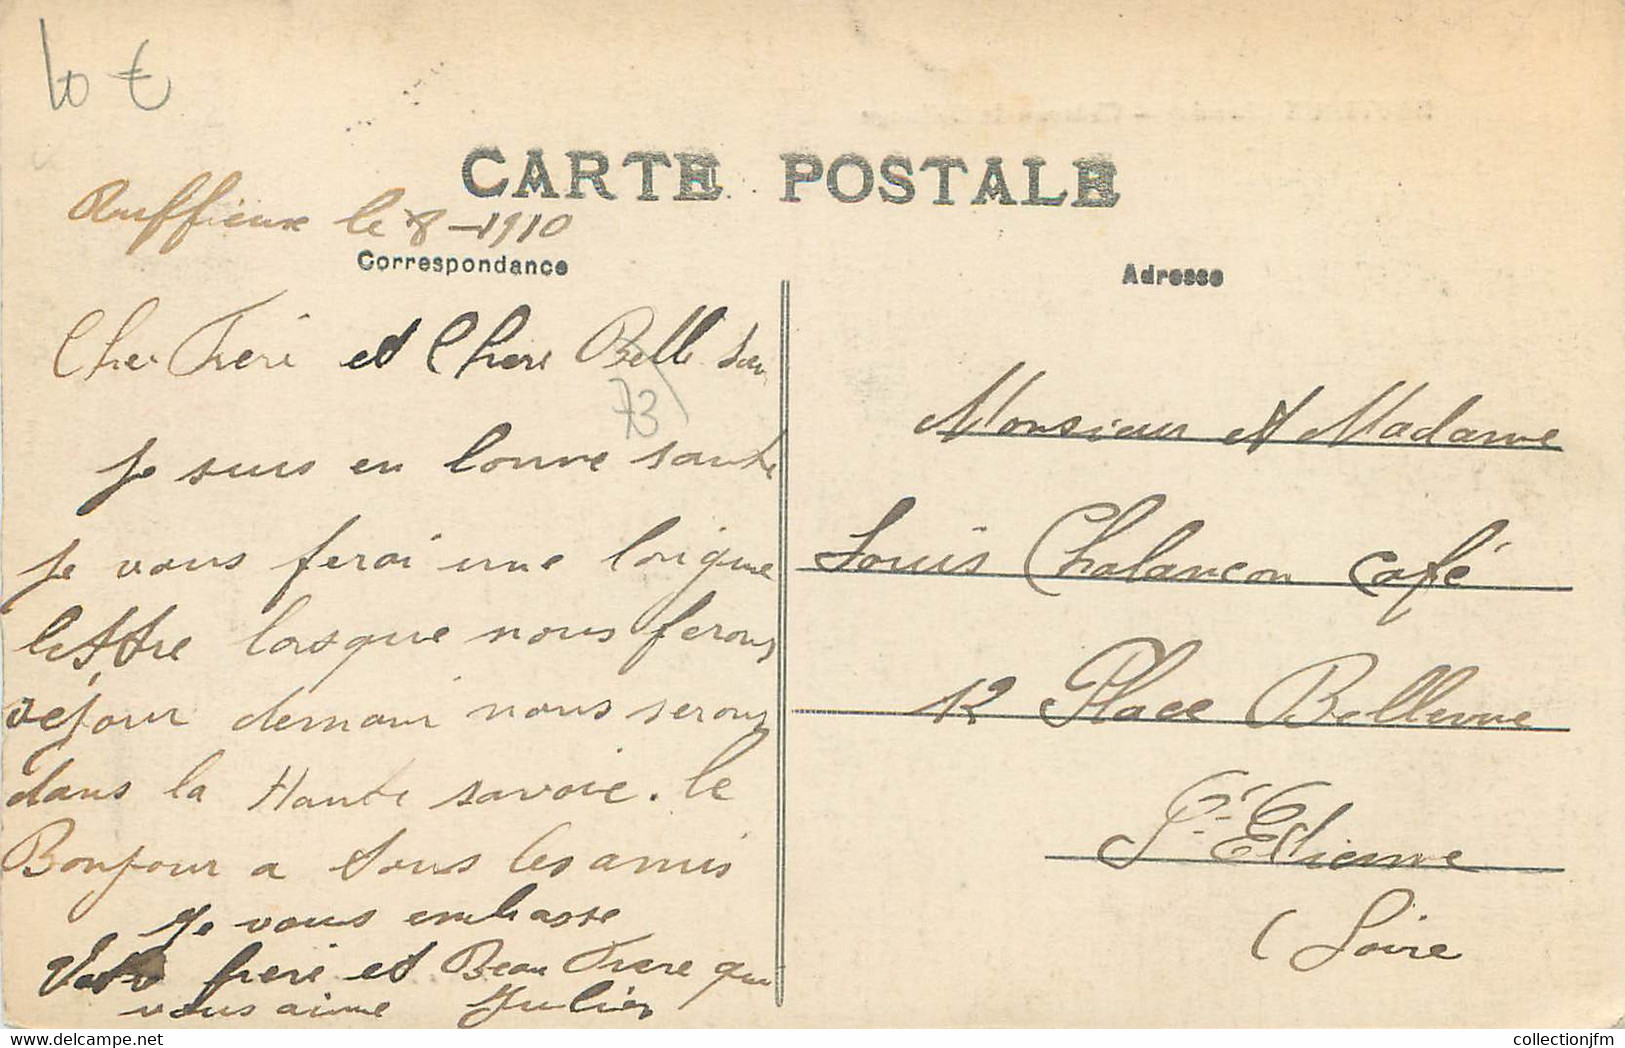 10 €
CARTE POSTALE
Ruffieux le 8-1910
Correspondance
Adresse
Cher Frere et Chere Belle Sœu
73
Je suis en bonne sante
Je vous ferai une longue
lettre lorsque nous ferons
séjour demain nous serons
dans la Haute savoie. le
Bonjour a tous les amis
Je vous embrasse
Votre frere et Beau Frere qui
vous aime Julien
Monsieur et Madame
Louis Chalancon café
12 Place Bellevue
St-Etienne
(Loire
collectionjfm